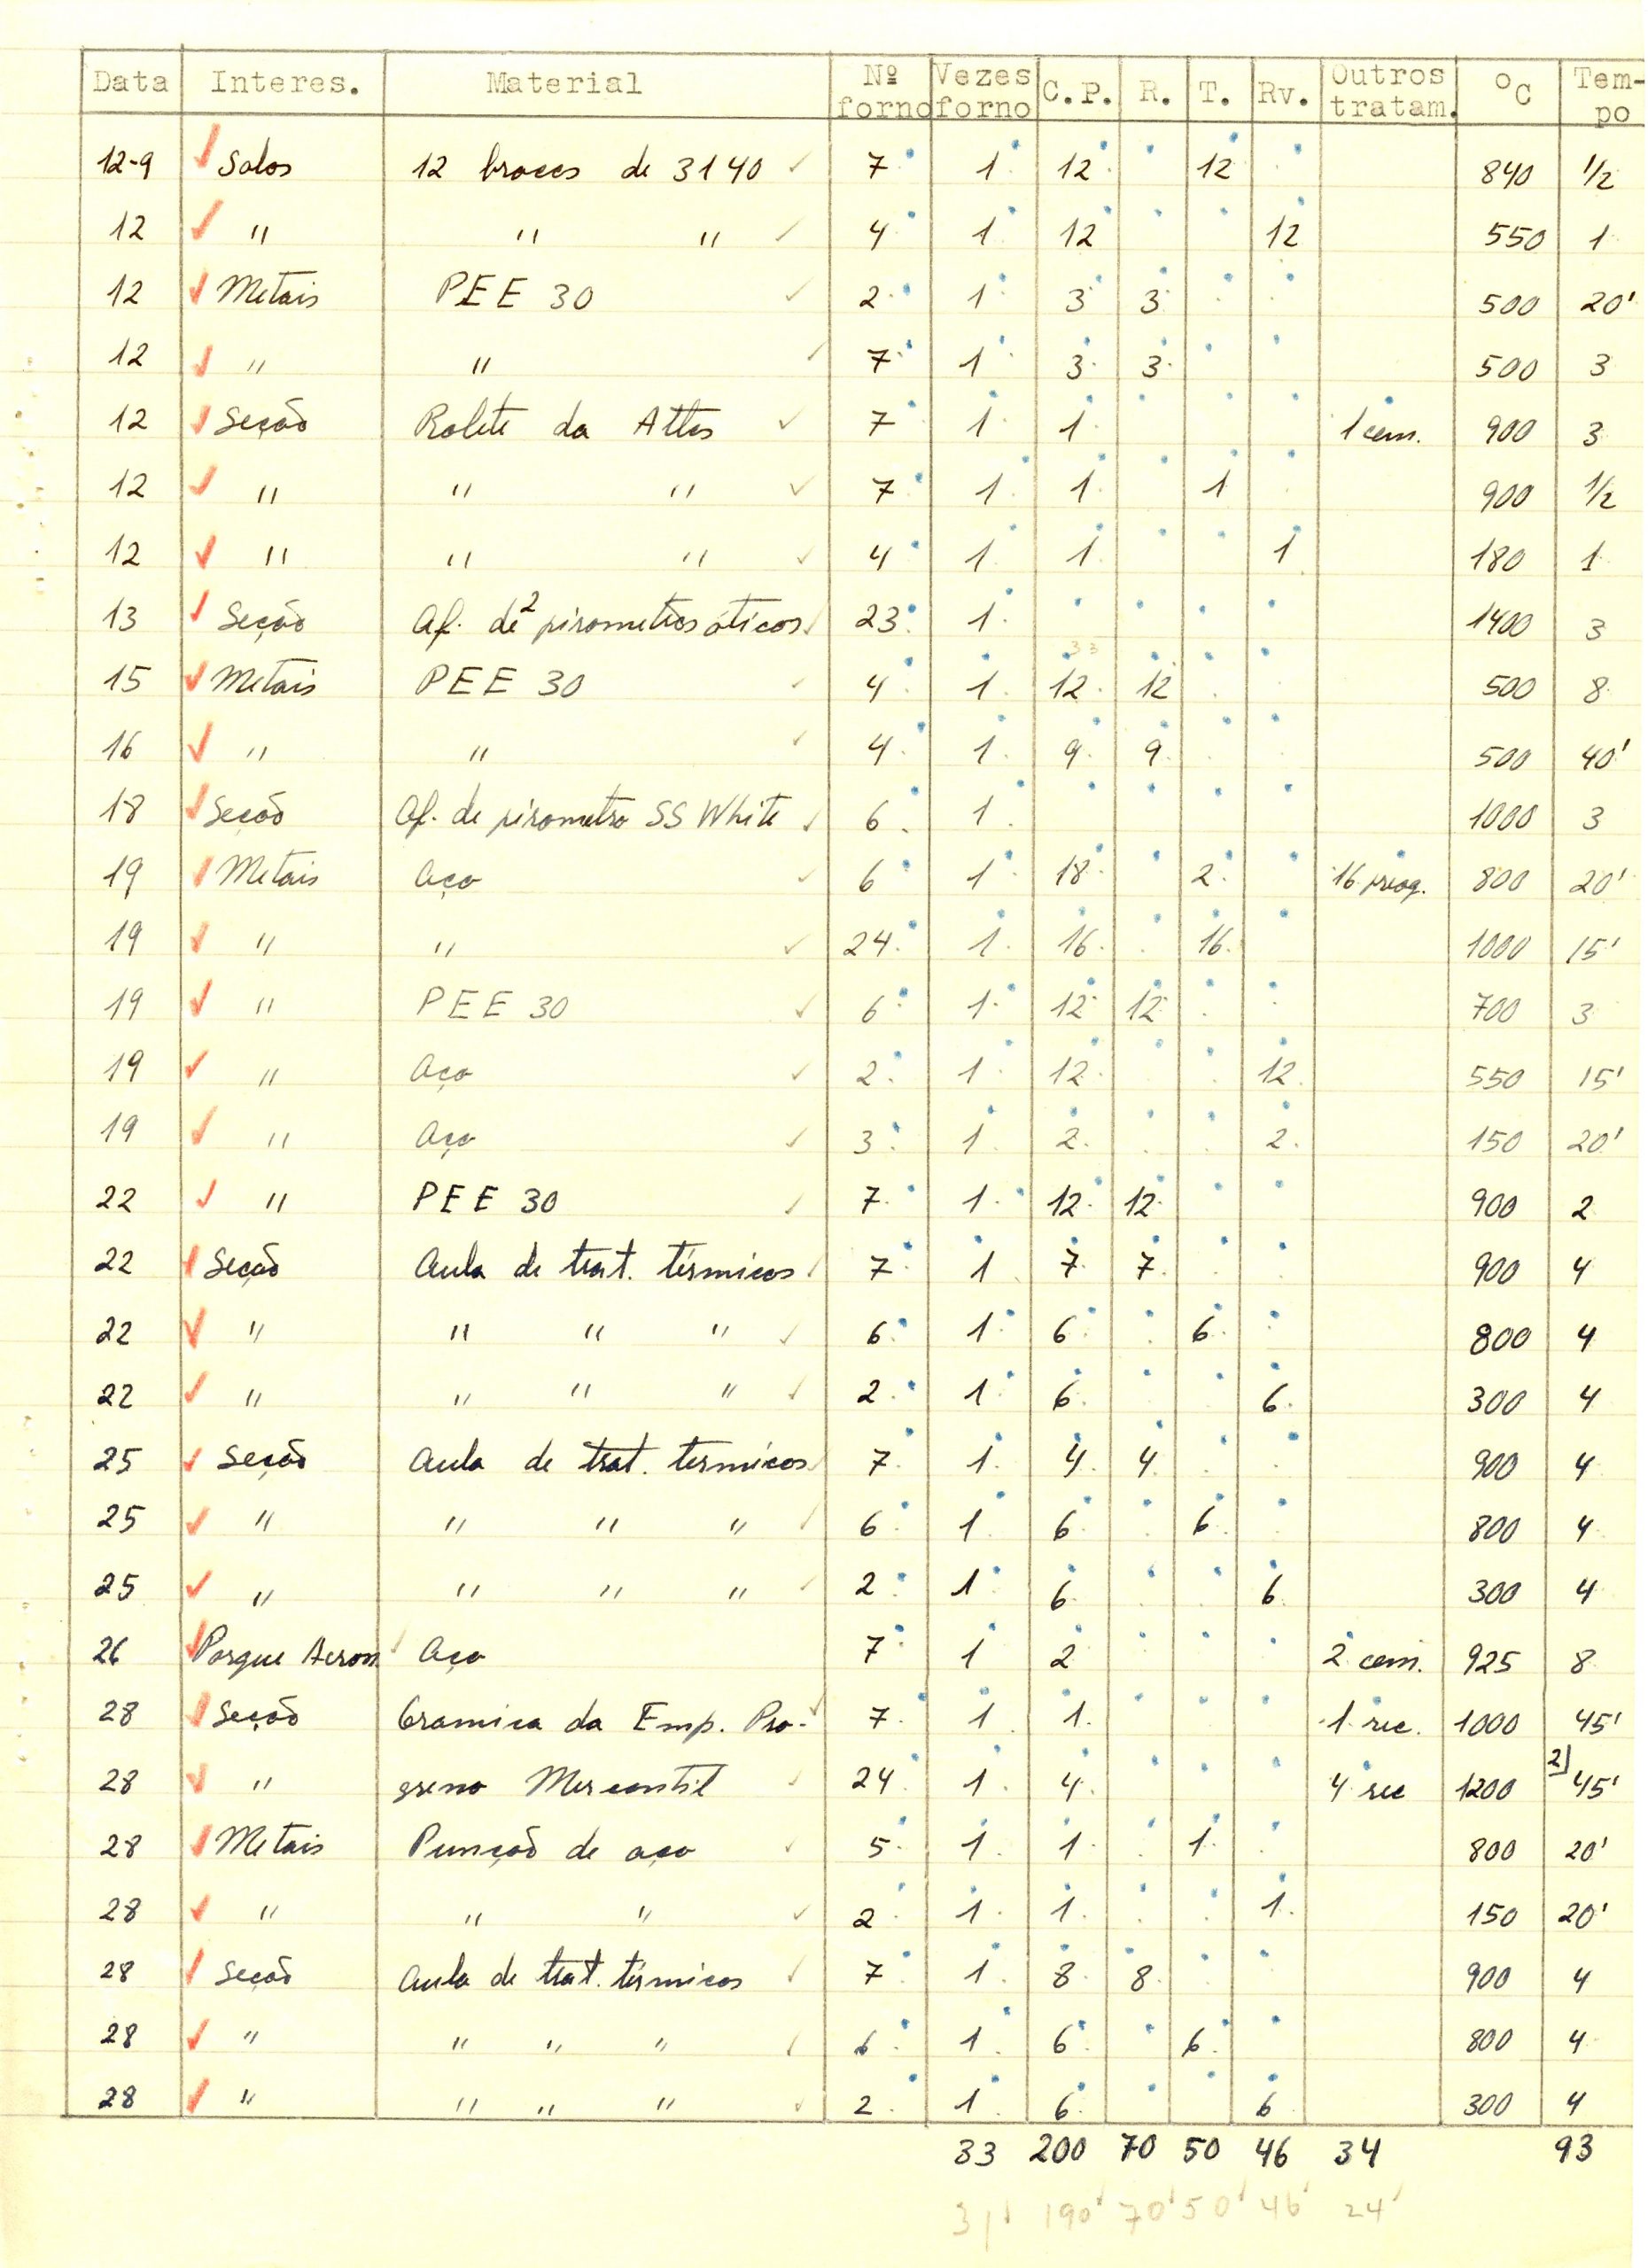 Data Interes. Material Nº forno Vezes forno C.P. R. T. Rv. Outros tratam. ºC Tem-po
12-9 Solos 12 brocas de 3140 7 1 12 12 840 1/2
12 " " " 4 1 12 12 550 1
12 Metais PEE 30 2 1 3 3 500 20'
12 " " 7 1 3 3 500 3
12 Seção Rolete da Atlas 7 1 1 1 cem. 900 3
12 " " " 7 1 1 1 900 1/2
12 " " " 4 1 1 1 180 1
13 Seção Af. de 2 pirometros óticos 23 1 1400 3
33
15 Metais PEE 30 4 1 12 12 500 8
16 " " 4 1 9 9 500 40'
18 Seção Af. de pirometro SS White 6 1 1000 3
19 Metais Aço 6 1 18 2 16 preaq. 800 20'
19 " " 24 1 16 16 1000 15'
19 " PEE 30 6 1 12 12 700 3
19 " Aço 2 1 12 12 550 15'
19 " Aço 3 1 2 2 150 20'
22 " PEE 30 7 1 12 12 900 2
22 Seção Aula de trat. térmicos 7 1 7 7 900 4
22 " " " " 6 1 6 6 800 4
22 " " " " 2 1 6 6 300 4
25 Seção Aula de trat. termicos 7 1 4 4 900 4
25 " " " " 6 1 6 6 800 4
25 " " " " 2 1 6 6 300 4
26 Parque Aeron. Aço 7 1 2 2 cem. 925 8
28 Seção Cramica da Emp. Pro- 7 1 1 1 rec. 1000 45'
28 " greno Mercantil 24 1 4 4 rec 1200 2) 45'
28 Metais Punção de aço 5 1 1 1 800 20'
28 " " " 2 1 1 1 150 20'
28 Seção Aula de trat. térmicos 7 1 8 8 900 4
28 " " " " 6 1 6 6 800 4
28 " " " " 2 1 6 6 300 4
33 200 70 50 46 34 93
31 190 70 50 46 24